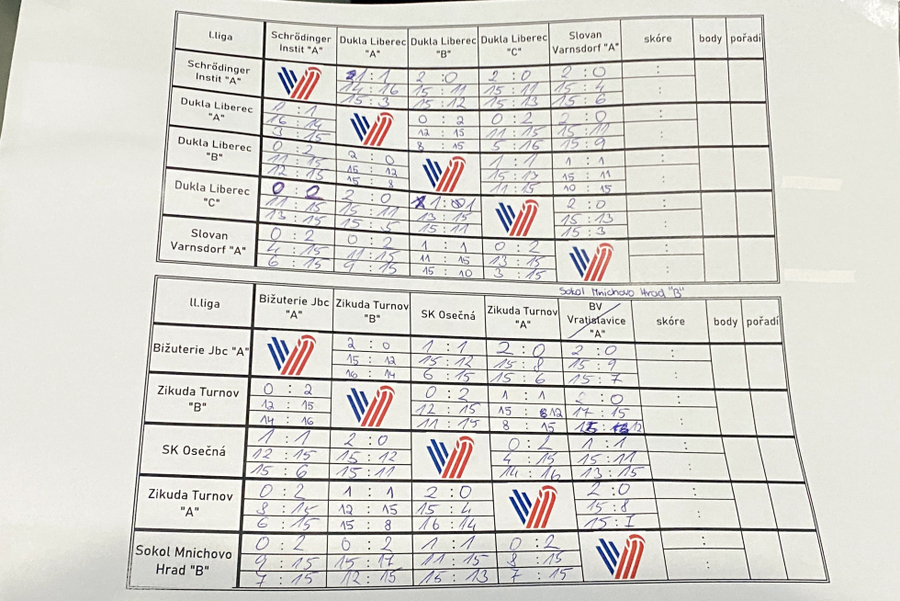 I.liga Schrödinger Instit "A" Dukla Liberec "A" Dukla Liberec "B" Dukla Liberec "C" Slovan Varnsdorf "A" skóre body pořadí
Schrödinger Instit "A" 1 : 1 2 : 0 2 : 0 2 : 0 :
14 : 16 15 : 11 15 : 11 15 : 4 :
15 : 3 15 : 12 15 : 13 15 : 6
Dukla Liberec "A" 1 : 1 0 : 2 0 : 2 2 : 0 :
16 : 14 12 : 15 11 : 15 15 : 11 :
3 : 15 8 : 15 5 : 16 15 : 9
Dukla Liberec "B" 0 : 2 2 : 0 1 : 1 1 : 1 :
11 : 15 15 : 12 15 : 13 15 : 11 :
12 : 15 15 : 8 11 : 15 10 : 15
Dukla Liberec "C" 0 : 2 2 : 0 1 : 1 2 : 0 :
11 : 15 15 : 11 13 : 15 15 : 13 :
13 : 15 15 : 5 15 : 11 15 : 3
Slovan Varnsdorf "A" 0 : 2 0 : 2 1 : 1 0 : 2 :
4 : 15 11 : 15 11 : 15 13 : 15 :
6 : 15 9 : 15 15 : 10 3 : 15
Sokol Mnichovo Hrad "B"
II.liga Bižuterie Jbc "A" Zikuda Turnov "B" SK Osečná Zikuda Turnov "A" BV Vratislavice "A" skóre body pořadí
Bižuterie Jbc "A" 2 : 0 1 : 1 2 : 0 2 : 0 :
15 : 12 15 : 12 15 : 8 15 : 9 :
16 : 14 6 : 15 15 : 6 15 : 7
Zikuda Turnov "B" 0 : 2 0 : 2 1 : 1 2 : 0 :
12 : 15 12 : 15 15 : 12 17 : 15 :
14 : 16 11 : 15 8 : 15 15 : 12
SK Osečná 1 : 1 2 : 0 0 : 2 1 : 1 :
12 : 15 15 : 12 4 : 15 15 : 11 :
15 : 6 15 : 11 14 : 16 13 : 15
Zikuda Turnov "A" 0 : 2 1 : 1 2 : 0 2 : 0 :
8 : 15 12 : 15 15 : 4 15 : 8 :
6 : 15 15 : 8 16 : 14 15 : 7
Sokol Mnichovo Hrad "B" 0 : 2 0 : 2 1 : 1 0 : 2 :
9 : 15 15 : 17 11 : 15 8 : 15 :
7 : 15 12 : 15 15 : 13 7 : 15